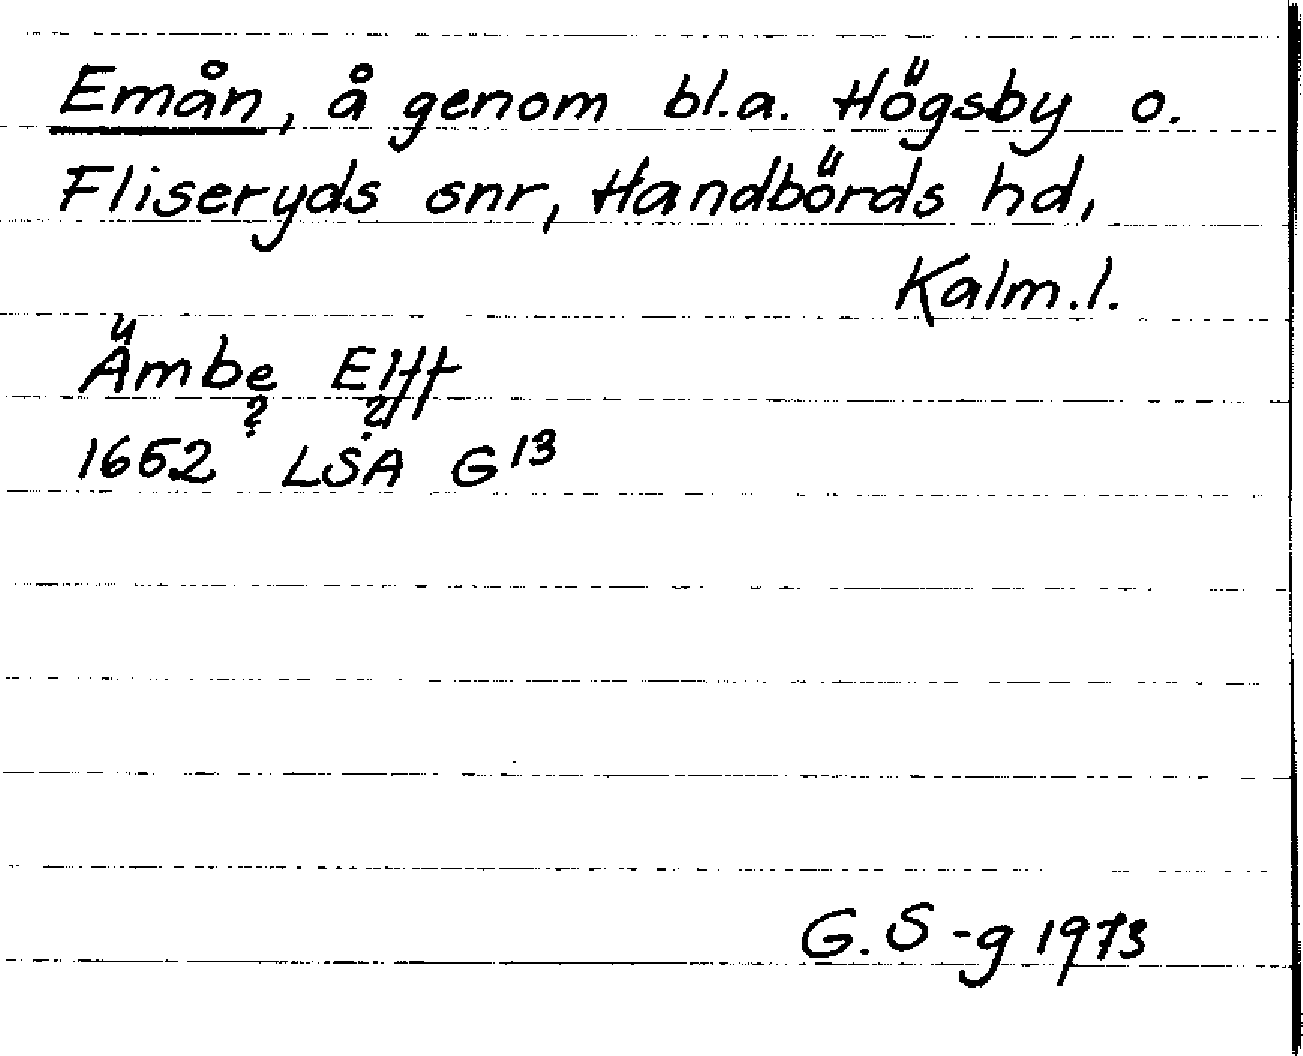 Emån, å genom bl.a. Högsby o.
Fliseryds snr, Handbörds hd,
Kalm.l.
Ämbe Elff
? ?
1652 LSA G13
G. S-g 1973